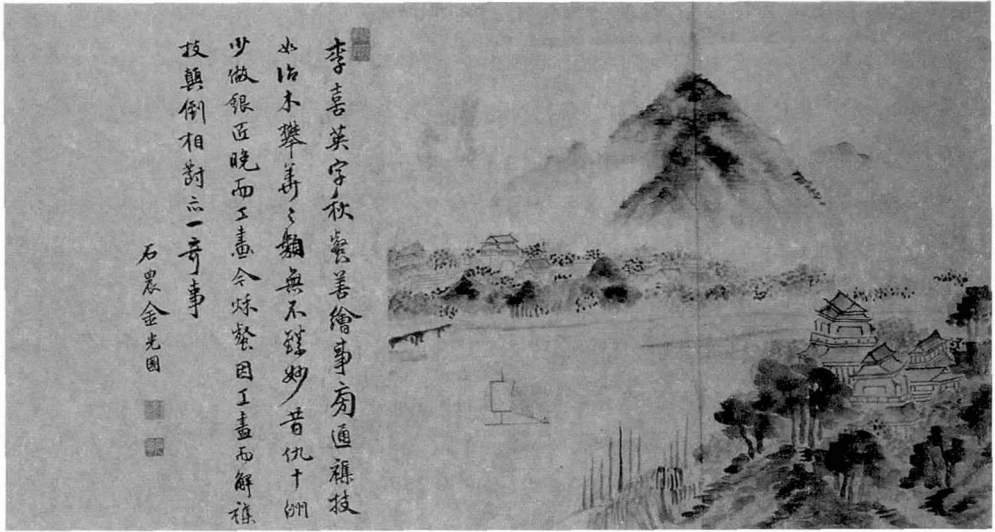 李喜英字秋餐善繪事旁通襍技
如治木之類無不臻妙昔仇十洲
少做銀匠晚而工畫今秌餐因工畫而解襍
技顛倒相對亦一奇事
石農金光國